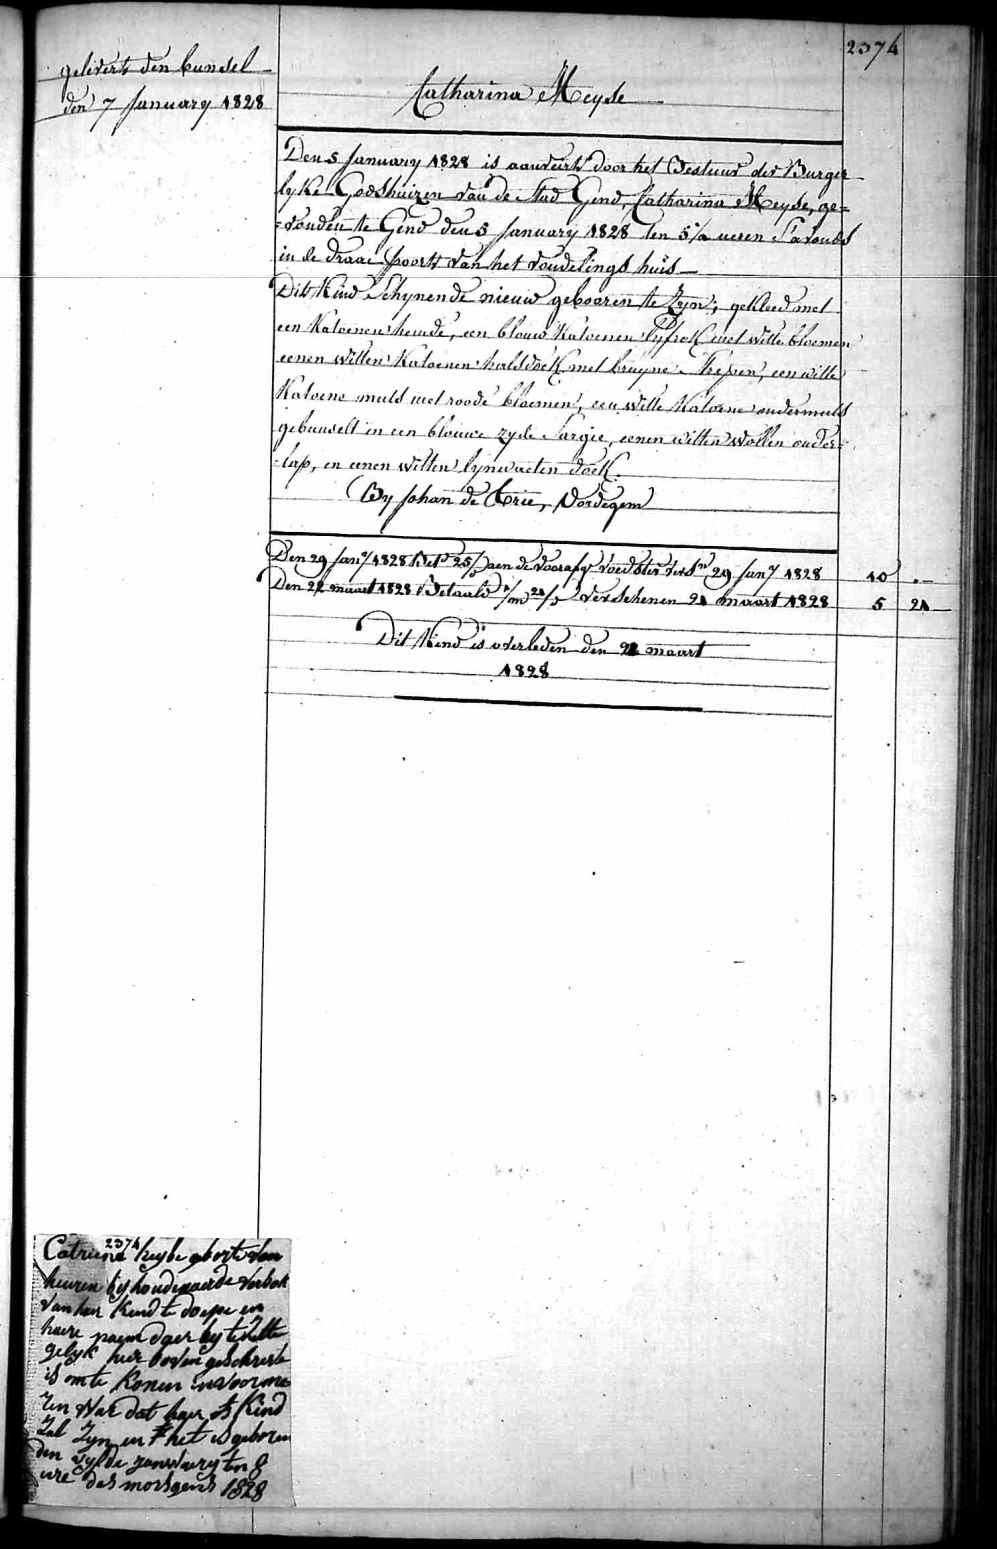 2374
gelivert den bundel
den 7 January 1828
Catharina Meyse
Den 5 January 1828 is aanveirt door het Bestuur der Burger
lyke Godshuizen van de stad Gend, Catharina Meyse, ge=
=vonden te Gend den 5 January 1828 ten 5½ ueren S'avonds
in de draai poorte van het vondelings huis
Dit Kind Schynende nieuw gebooren te Zyn; gekleed met
een Katoenen hemde, een blouw Katoenen lyfrok met witte bloemen
eenen witten Katoenen halsdoek met bruyne strepen, een witte
Katoene muts met roode bloemen, een witte Katoene ondermuts
gebunselt in een blouwe zyde Sargie, eenen witten wollen onder=
=lap, en eenen witten lynwaeten doek.
By Johan de Brie, Vordegem
Den 29 Jany 1828 Bet 25/ aen de voorafge voedster vers 29 Jany 1828 10 . —
Den 22 maart 1828 Betaald 1/m 21/ verschenen 21 maart 1828 5 21
Dit Kind is overleden den 21 maart
1828
2374
Catriena heyse gborte van
heuren by houdenaerde Versok
van haer Kind te doepe en
haere naem daer by te Zette
gelyk hier boven geschreve
is om te Konen
Zyn War dat haer Kind
Zal Zyn en het is geboren
den vyfde januwary ten 8
ure des morgens 1828